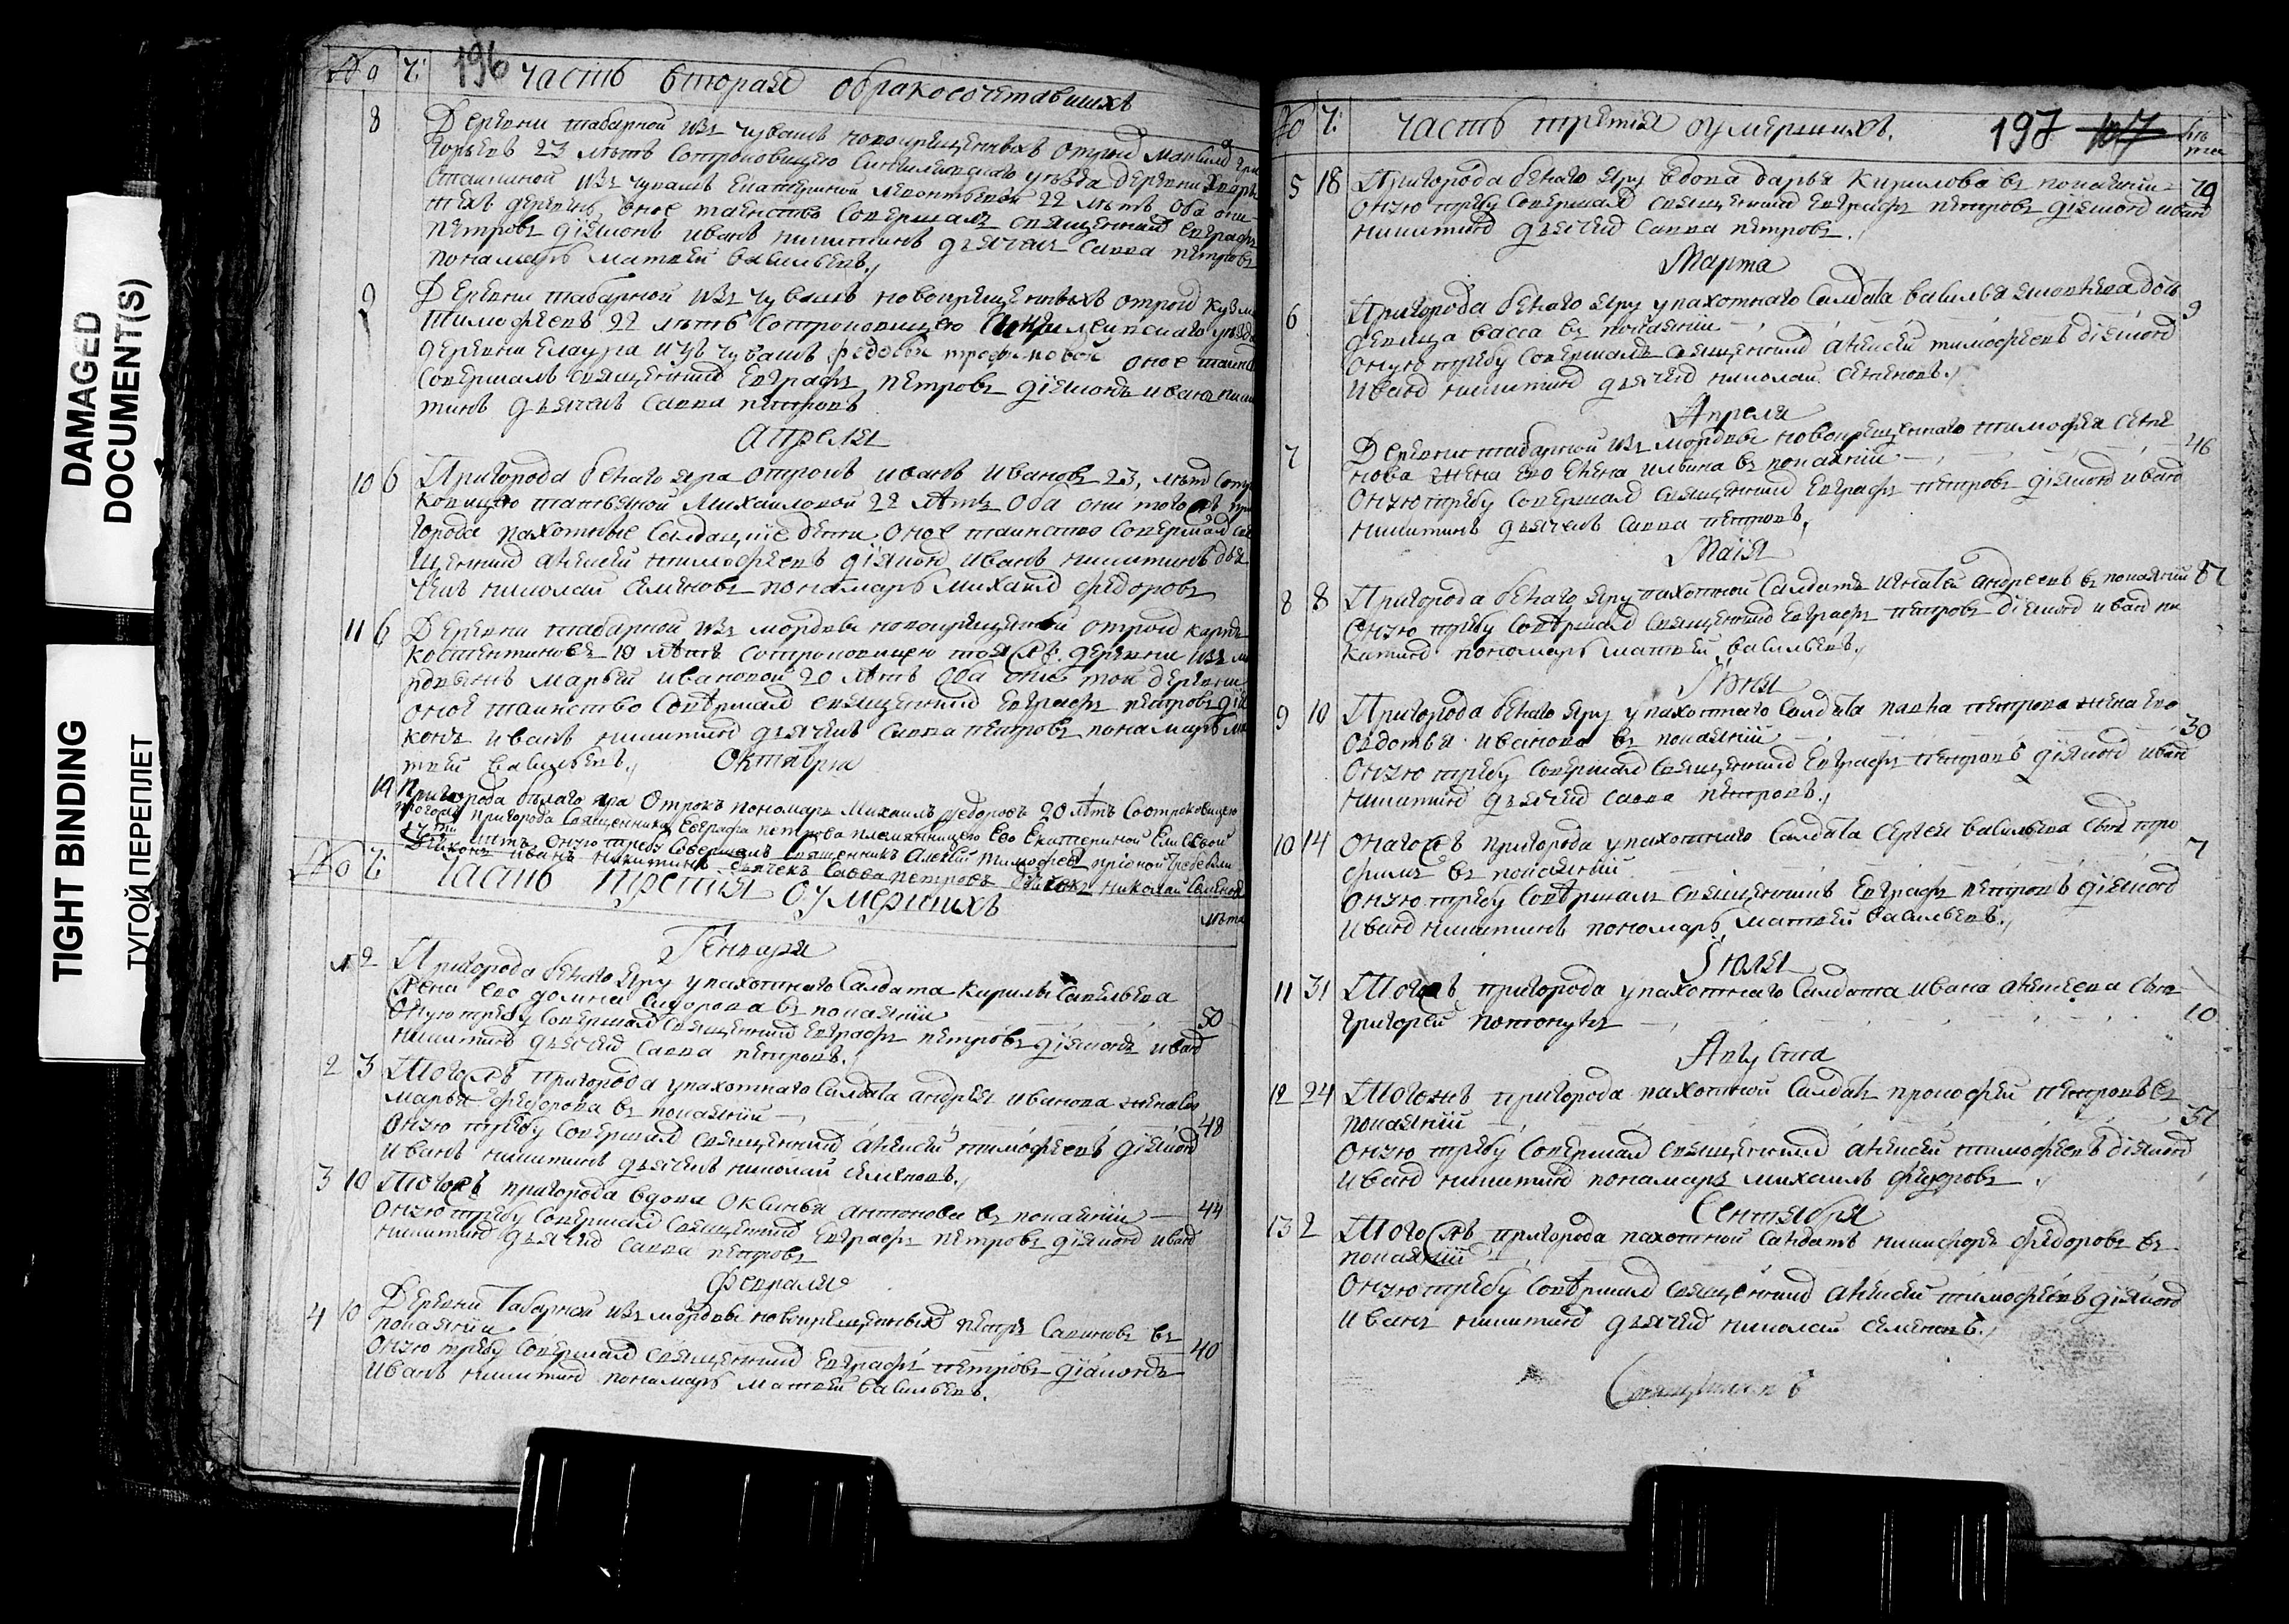 DAMAGED
DOCUMENT(S)
TIGHT BINDING
ТУГОЙ ПЕРЕПЛЕТ
№ Ч: 196 часть вторая обракосочетавшихъ
8 Деревни табарной изъ чувашъ новокрещеныхъ отрокъ
23 летъ Сотроковицею уезда деревни
изъ чувашъ Екатериной Леонтьевой 22 летъ оба они
тех деревень, оное таенство совершалъ священникъ Евграфъ
Петровъ диаконъ Иванъ Никитинъ дьячекъ Савва Петровъ
понамарь Матвеи Васильевъ
9 Деревни табарной изъ чувашъ новокрещеныхъ отрокъ Кузма
Тимофеевъ 22 летъ сотроковицею
деревни Елаура изъ чувашъ Федосьи Трофимовой оное таин
совершалъ священникъ Евграфъ Петровъ диаконъ Иванъ Ники
тинъ дьячекъ Савва Петровъ
Апреля
10 6 Пригорода белаго яра отрокъ Иванъ Ивановъ 23, летъ сотро
ковицею Татьяной Михаиловой 22 летъ оба они того жъ при
города пахотные салдацкие дети оное таинство совершалъ свя
щенникъ Алексей Тимофеевъ диаконъ Иванъ Никитинъ дья
чекъ Николаи Семеновъ понамарь Михаилъ Федоровъ
11 6 Деревни табарной изъ мордвы новокрещеной отрокъ Карпъ
Костентиновъ 19 летъ сотроковицею тоя жъ деревни изъ мо
рдвынъ Марьей Ивановой 20 летъ оба они той деревни
оное таинство совершалъ священникъ Евграфъ Петровъ дiа
конъ Иванъ Никитинъ дьячекъ Савва Петровъ понамарь Ма
твеи Васильевъ. Октября
19 Пригорода белаго яра отрокъ пономарь Михаилъ Федоровъ 20 летъ сотроковицею
пригорода священника Евграфа Петрова племянницею его Екатериной
летъ оную требу совершалъ священникъ Алексий Тимофеевъ
диаконъ Иванъ Никитинъ дьячекъ Савва Петровъ Николай Семеновъ
№ Ч: Часть третия оумершихъ
лета
Генваря
1 2 Пригорода белаго яру упахотнаго салдата Кирилы Савельева
жена его Домна Сидорова въ покаянии 50
оную требу совершалъ священникъ Евграфъ Петровъ диаконъ Иванъ
Никитинъ дьячекъ Савва Петровъ.
2 3 Того жъ пригорода упахотнаго салдата Андрея Иванова жена ево
Марья Федорова въ покаянии 48
оную требу совершалъ священникъ Алексеи Тимофеевъ диаконъ
Иванъ Никитинъ дьячекъ Николаи Семеновъ.
3 10 Того жъ пригорода вдова Оксинья Антонова въ покаянии 44
оную требу совершалъ священникъ Евграфъ Петровъ диаконъ Иванъ
Никитинъ дьячекъ Савва Петровъ
Февраля
4 10 Деревни Табарной изъ мордвы новокрещеныхъ Петръ Савиновъ въ
покаянии 40
оную требу совершалъ священникъ Евграфъ Петровъ диаконъ
Иванъ Никитинъ понамарь Матвеи Васильевъ.
№ Ч: Часть третия оумершихъ. 197 лета
5 18 Пригорода белаго яру вдова Дарья Кирилова въ покаянии 79
оную требу совершалъ священникъ Евграфъ Петровъ диаконъ Иванъ
Никитинъ дьячекъ Савва Петровъ.
Марта
6 Пригорода белаго яру упахотнаго салдата Василья дочь 9
девица Васса въ покаянии
оную требу совершалъ священникъ Алексеи Тимофеевъ диаконъ
Иванъ Никитинъ дьячекъ Николаи Семеновъ.
Апреля
7 Деревни табарной изъ мордвы новокрещеннаго Тимофея Семе
нова жена его Елена Ильина въ покаянии 46
оную требу совершалъ священникъ Евграфъ Петровъ диаконъ Иванъ
Никитинъ дьячекъ Савва Петровъ.
Маiя
8 8 Пригорода белаго яру пахотной салдатъ Игнатеи Андреевъ въ покаянии
оную требу совершалъ священникъ Евграфъ Петровъ диаконъ Иванъ Ни
китинъ пономарь Матвеи Васильевъ.
Июня
9 10 Пригорода белаго яру упахотнаго салдата Павла Петрова жена ево
Овдотья Иванова въ покаянии 30
оную требу совершалъ священникъ Евграфъ Петровъ диаконъ Иванъ
Никитинъ дьячекъ Савва Петровъ.
10 14 Онаго жъ пригорода упахотнаго салдата Сергея Васильева сынъ Тро
фимъ въ покаянии 7
оную требу совершалъ священникъ Евграфъ Петровъ диаконъ
Иванъ Никитинъ пономарь Матвеи Васильевъ.
Июля
11 31 Того жъ пригорода упахотнаго салдата Ивана Алексеева сынъ
Григореи потонулъ 10
Августа
12 24 Того жъ пригорода пахотной салдатъ Прокофеи Петровъ въ
покаянии
оную требу совершалъ священникъ Алексеи Тимофеевъ диаконъ
Иванъ Никитинъ понамарь Михаилъ Федоровъ
Сентября
13 2 Того жъ пригорода пахотной салдатъ Никифоръ Федоровъ въ
покаянии
оную требу совершалъ священникъ Алексеи Тимофеевъ диаконъ
Иванъ Никитинъ дьячекъ Николаи Семеновъ.